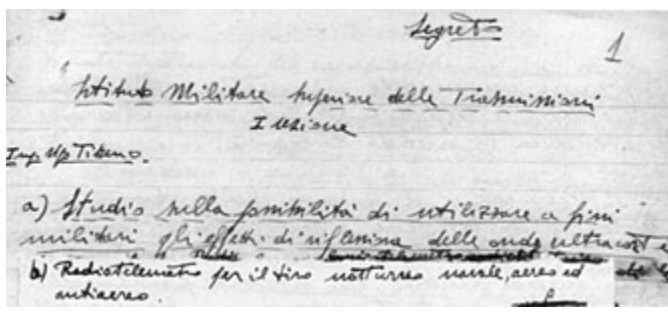 Segreto
1
Istituto Militare Superiore delle Trasmissioni
I sezione
Ing. Ugo Tiberio.
a) Studio sulla possibilità di utilizzare a fini
militari gli effetti di riflessione delle onde ultracorte
b) Radiotelemetro per il tiro notturno navale, aereo ed
antiaereo.